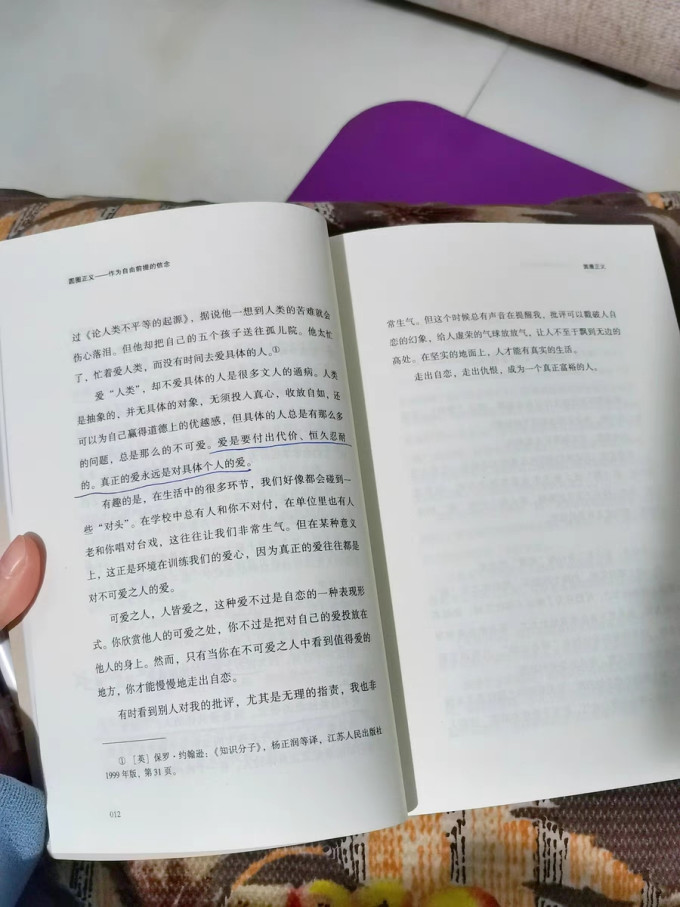 圆圈正义——作为自由前提的信念
过《论人类不平等的起源》，据说他一想到人类的苦难就会
伤心落泪。但他却把自己的五个孩子送往孤儿院。他太忙
了，忙着爱人类，而没有时间去爱具体的人。①
爱“人类”，却不爱具体的人是很多文人的通病。人类
是抽象的，并无具体的对象，无须投入真心，收放自如，还
可以为自己赢得道德上的优越感，但具体的人总是有那么多
的问题，总是那么的不可爱。爱是要付出代价、恒久忍耐
的。真正的爱永远是对具体个人的爱。
有趣的是，在生活中的很多环节，我们好像都会碰到一
些“对头”。在学校中总有人和你不对付，在单位里也有人
老和你唱对台戏，这往往让我们非常生气。但在某种意义
上，这正是环境在训练我们的爱心，因为真正的爱往往都是
对不可爱之人的爱。
可爱之人，人皆爱之，这种爱不过是自恋的一种表现形
式。你欣赏他人的可爱之处，你不过是把对自己的爱投放在
他人的身上。然而，只有当你在不可爱之人中看到值得爱的
地方，你才能慢慢地走出自恋。
有时看到别人对我的批评，尤其是无理的指责，我也非
① ［英］保罗·约翰逊：《知识分子》，杨正润等译，江苏人民出版社
1999年版，第31页。
012
圆圈正义
常生气。但这个时候总有声音在提醒我，批评可以戳破人自
恋的幻象，给人虚荣的气球放放气，让人不至于飘到无边的
高处。在坚实的地面上，人才能有真实的生活。
走出自恋，走出仇恨，成为一个真正富裕的人。